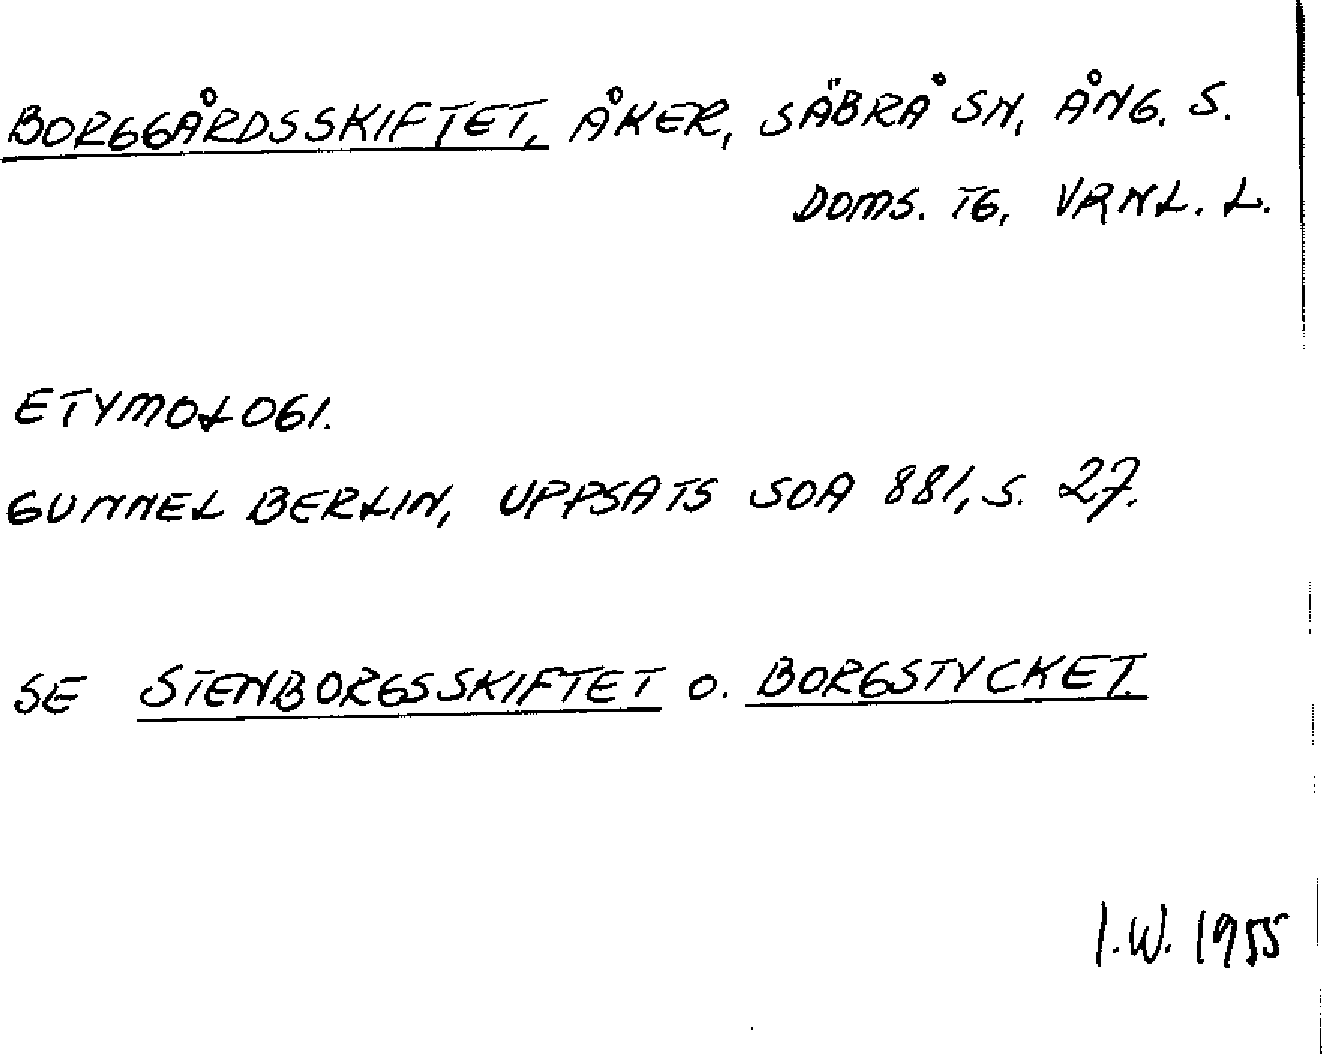 BORGGÅRDSSKIFTET, ÅKER, SÄBRÅ SN, ÅNG. S.
DOMS. TG, VRNL. L.
ETYMOLOGI.
GUNNEL BERLIN, UPPSATS SOA 881, S. 27.
SE STENBORGSSKIFTET O. BORGSTYCKET.
I.W. 1955